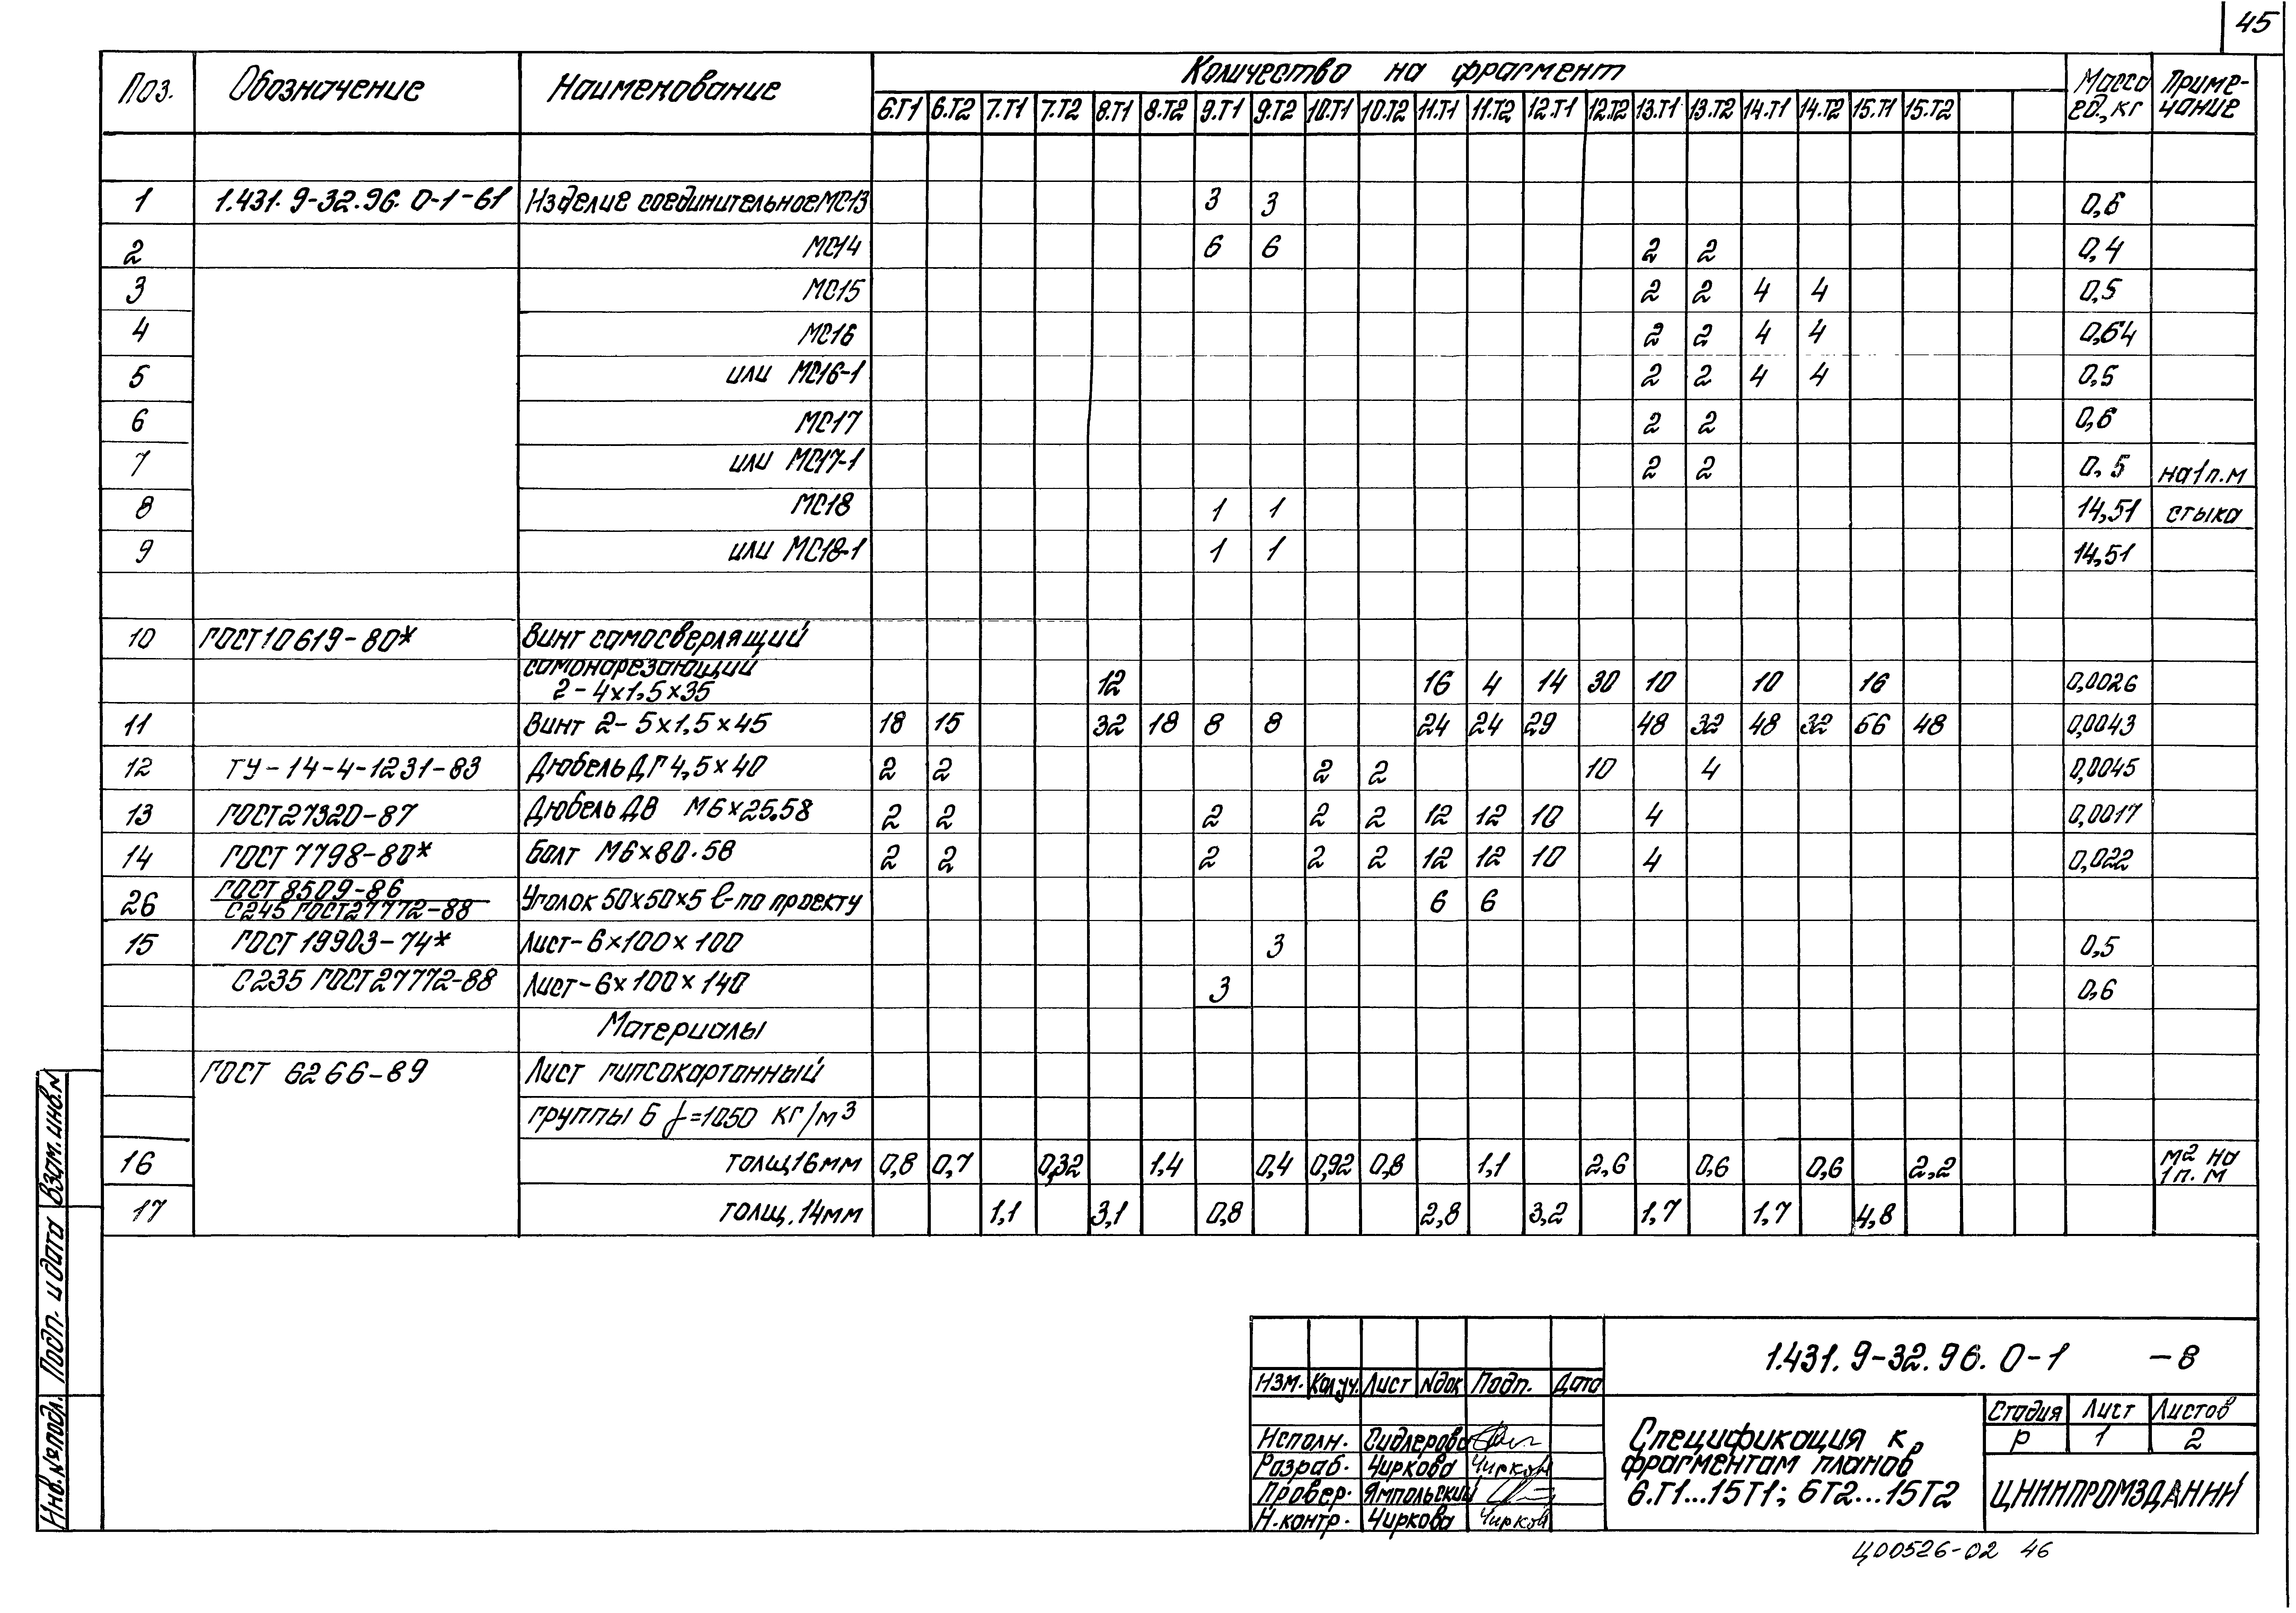 45
Поз. Обозначение Наименование Количество на фрагмент Масса ед., кг Приме-чание
6.Т1 6.Т2 7.Т1 7.Т2 8.Т1 8.Т2 9.Т1 9.Т2 10.Т1 10.Т2 11.Т1 11.Т2 12.Т1 12.Т2 13.Т1 13.Т2 14.Т1 14.Т2 15.Т1 15.Т2
1 1.431.9-32.96.0-1-61 Изделие соединительное МС13 3 3 0,6
2 МС14 6 6 2 2 0,4
3 МС15 2 2 4 4 0,5
4 МС16 2 2 4 4 0,64
5 или МС16-1 2 2 4 4 0,5
6 МС17 2 2 0,6
7 или МС17-1 2 2 0,5 на 1п.м
8 МС18 1 1 14,51 стыка
9 или МС18-1 1 1 14,51
10 ГОСТ 10619-80* Винт самосверлящий
самонарезающий
2-4×1,5×35 12 16 4 14 30 10 10 16 0,0026
11 Винт 2-5×1,5×45 18 15 32 18 8 8 24 24 29 48 32 48 32 66 48 0,0043
12 ТУ-14-4-1231-83 Дюбель ДГ 4,5×40 2 2 2 2 10 4 0,0045
13 ГОСТ 27320-87 Дюбель ДВ М6×25.58 2 2 2 2 2 12 12 10 4 0,0017
14 ГОСТ 7798-80* Болт М6×80.58 2 2 2 2 2 12 12 10 4 0,022
26 ГОСТ 8509-86
С245 ГОСТ 27772-88 Уголок 50×50×5 ℓ-по проекту 6 6
15 ГОСТ 19903-74* Лист-6×100×100 3 0,5
С235 ГОСТ 27772-88 Лист-6×100×140 3 0,6
Материалы
ГОСТ 6266-89 Лист гипсокартонный
группы Б γ=1050 кг/м3
16 толщ.16мм 0,8 0,7 0,32 1,4 0,4 0,92 0,8 1,1 2,6 0,6 0,6 2,2 м2 на 1п.м
17 толщ.14мм 1,1 3,1 0,8 2,8 3,2 1,7 1,7 4,8
Взам.инв.N
Подп. и дата
Инв.№подл.
1.431.9-32.96.0-1 -8
Изм. Кол.уч. Лист Nдок Подп. Дата
Исполн. Сидлерова
Разраб. Чиркова Чирков
Провер. Ямпольский
Н.контр. Чиркова Чирков
Спецификация к
фрагментам планов
6.Т1...15Т1; 6Т2...15Т2
Стадия Лист Листов
Р 1 2
ЦНИИПРОМЗДАНИЙ
Ц00526-02 46